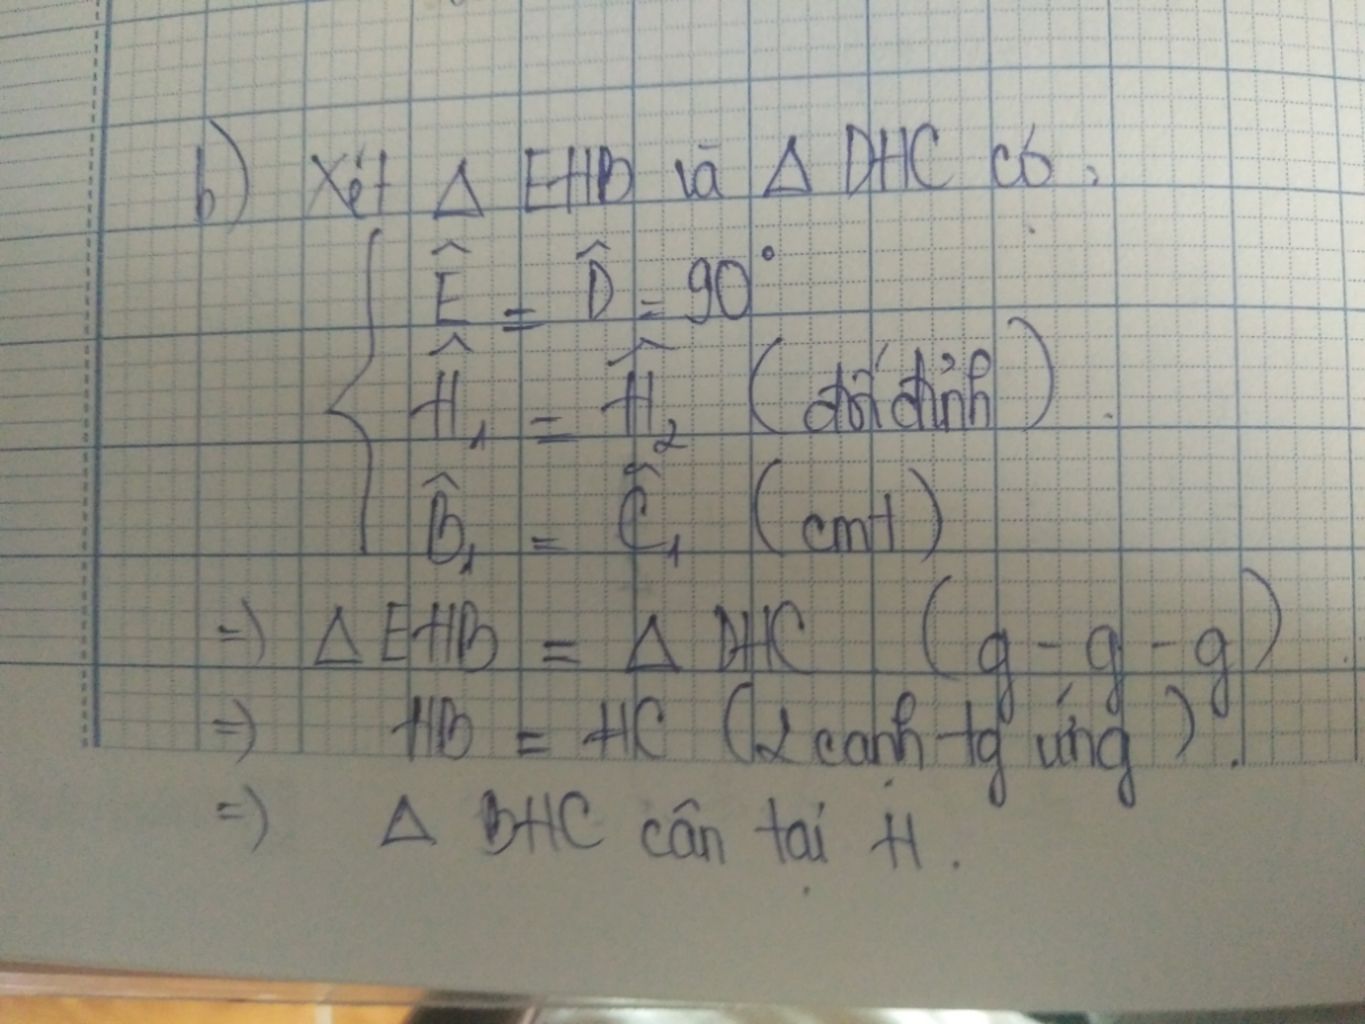 b) Xét Δ EHB và Δ DHC có:
Ê = D̂ = 90°
Ĥ₁ = Ĥ₂ (đối đỉnh).
B̂₁ = Ĉ₁ (cmt)
=) Δ EHB = Δ DHC (g - g - g)
=) HB = HC (2 cạnh tg ứng).
=) Δ BHC cân tại H.